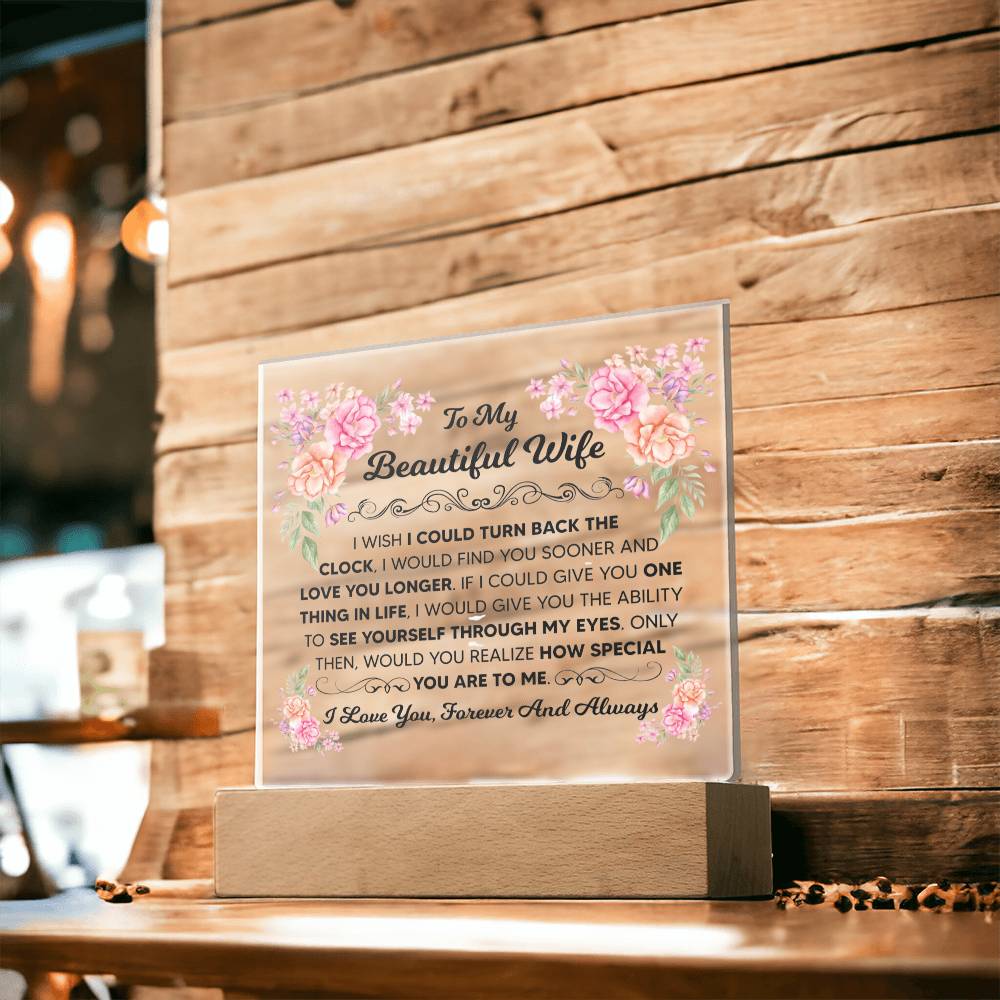 To My
Beautiful Wife
I WISH I COULD TURN BACK THE
CLOCK, I WOULD FIND YOU SOONER AND
LOVE YOU LONGER. IF I COULD GIVE YOU ONE
THING IN LIFE, I WOULD GIVE YOU THE ABILITY
TO SEE YOURSELF THROUGH MY EYES. ONLY
THEN, WOULD YOU REALIZE HOW SPECIAL
YOU ARE TO ME.
I Love You, Forever And Always